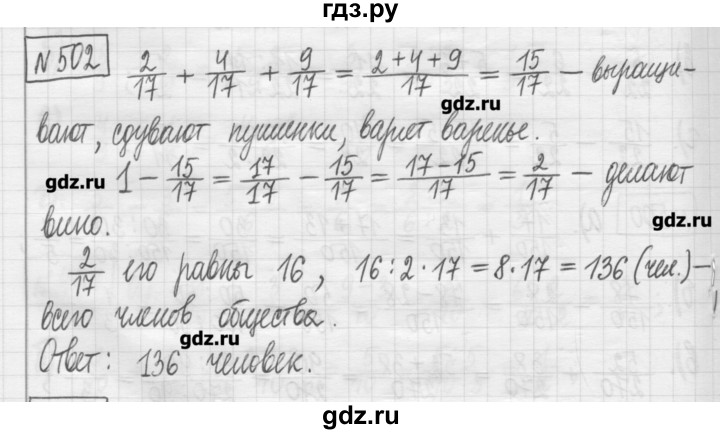 гдз.ру
№502 2/17 + 4/17 + 9/17 = 2+4+9/17 = 15/17 – выращи-
gdz.ru
вают, сдувают пушинки, варят варенье.
gdz.ru 1 – 15/17 = 17/17 – 15/17 = 17–15/17 = 2/17 – делают
вино.
gdz.ru
2/17 его равны 16, 16:2·17=8·17=136 (чел.)–
всего членов общества.
gdz.ru
Ответ: 136 человек.
gdz.ru